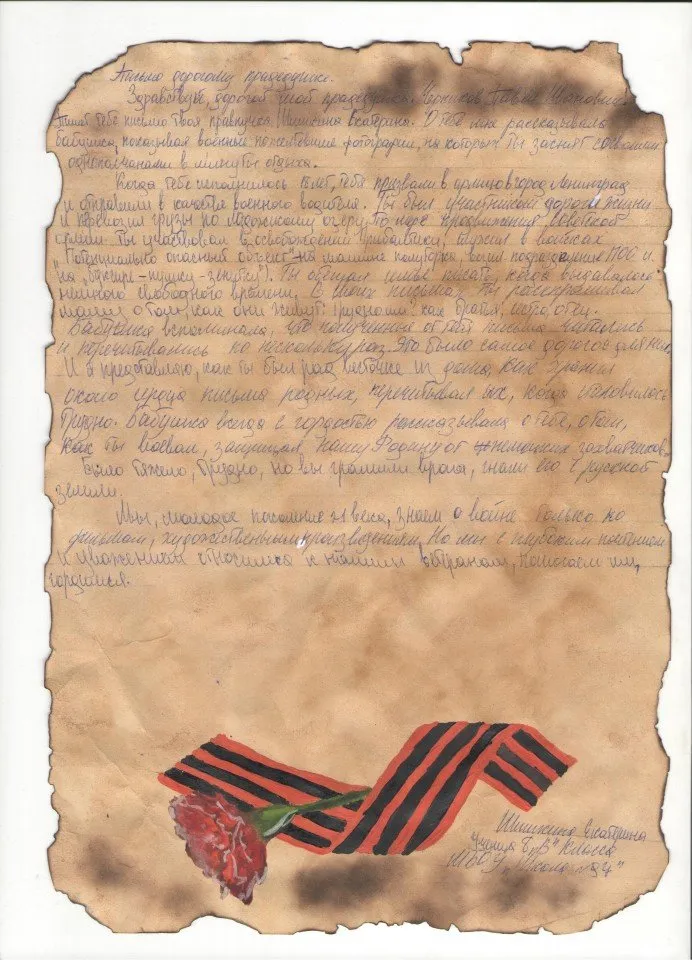 Письмо дорогому прадедушке.
Здравствуй, дорогой мой прадедушка Иванович.
Пишет тебе письмо твоя правнучка Шишкина Екатерина. О тебе мне рассказывала
бабушка, показывая военные пожелтевшие фотографии, на которых ты заснят со своими
однополчанами в минуты отдыха.
Когда тебе исполнилось лет, тебя призвали в армию в город Ленинград
и отправили в качестве военного водителя. Ты был участником дороги жизни
и перевозил грузы по Ладожскому озеру. По мере продвижения советской
армии ты участвовал в освобождении Прибалтики, служил в войсках
"Потенциально опасный объект" на машине полуторка, возил подразделение и
на буксире - пушку - зенитку). Ты обещал маме писать, когда выдавалось
немного свободного времени. В своих письмах ты расспрашивал
маму о том, как они живут? Трудно ли? Как братья, сестра, отец.
Бабушка вспоминала, что полученные от тебя письма читались
и перечитывались по нескольку раз. Это было самое дорогое для них.
И я представляю, как ты был рад весточке из дома, как хранил
около сердца письма родных, перечитывал их, когда становилось
трудно. Бабушка всегда с гордостью рассказывала о тебе, о том,
как ты воевал, защищая нашу Родину от немецких захватчиков.
Было тяжело, трудно, но вы громили врага, гнали его с русской
земли.
Мы, молодое поколение 21 века, знаем о войне только по
фильмам, художественным произведениям. Но мы с глубоким почтением
и уважением относимся к нашим ветеранам, помогаем им,
гордимся.
Шишкина Екатерина
Ученица 8 "В" класса
МБОУ "Школа №94"